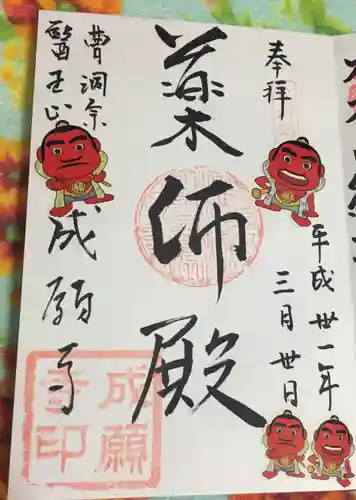 奉拝
平成廿一年
三月廿日
薬师殿
曹洞宗
醫王山
成願寺
成願
寺印